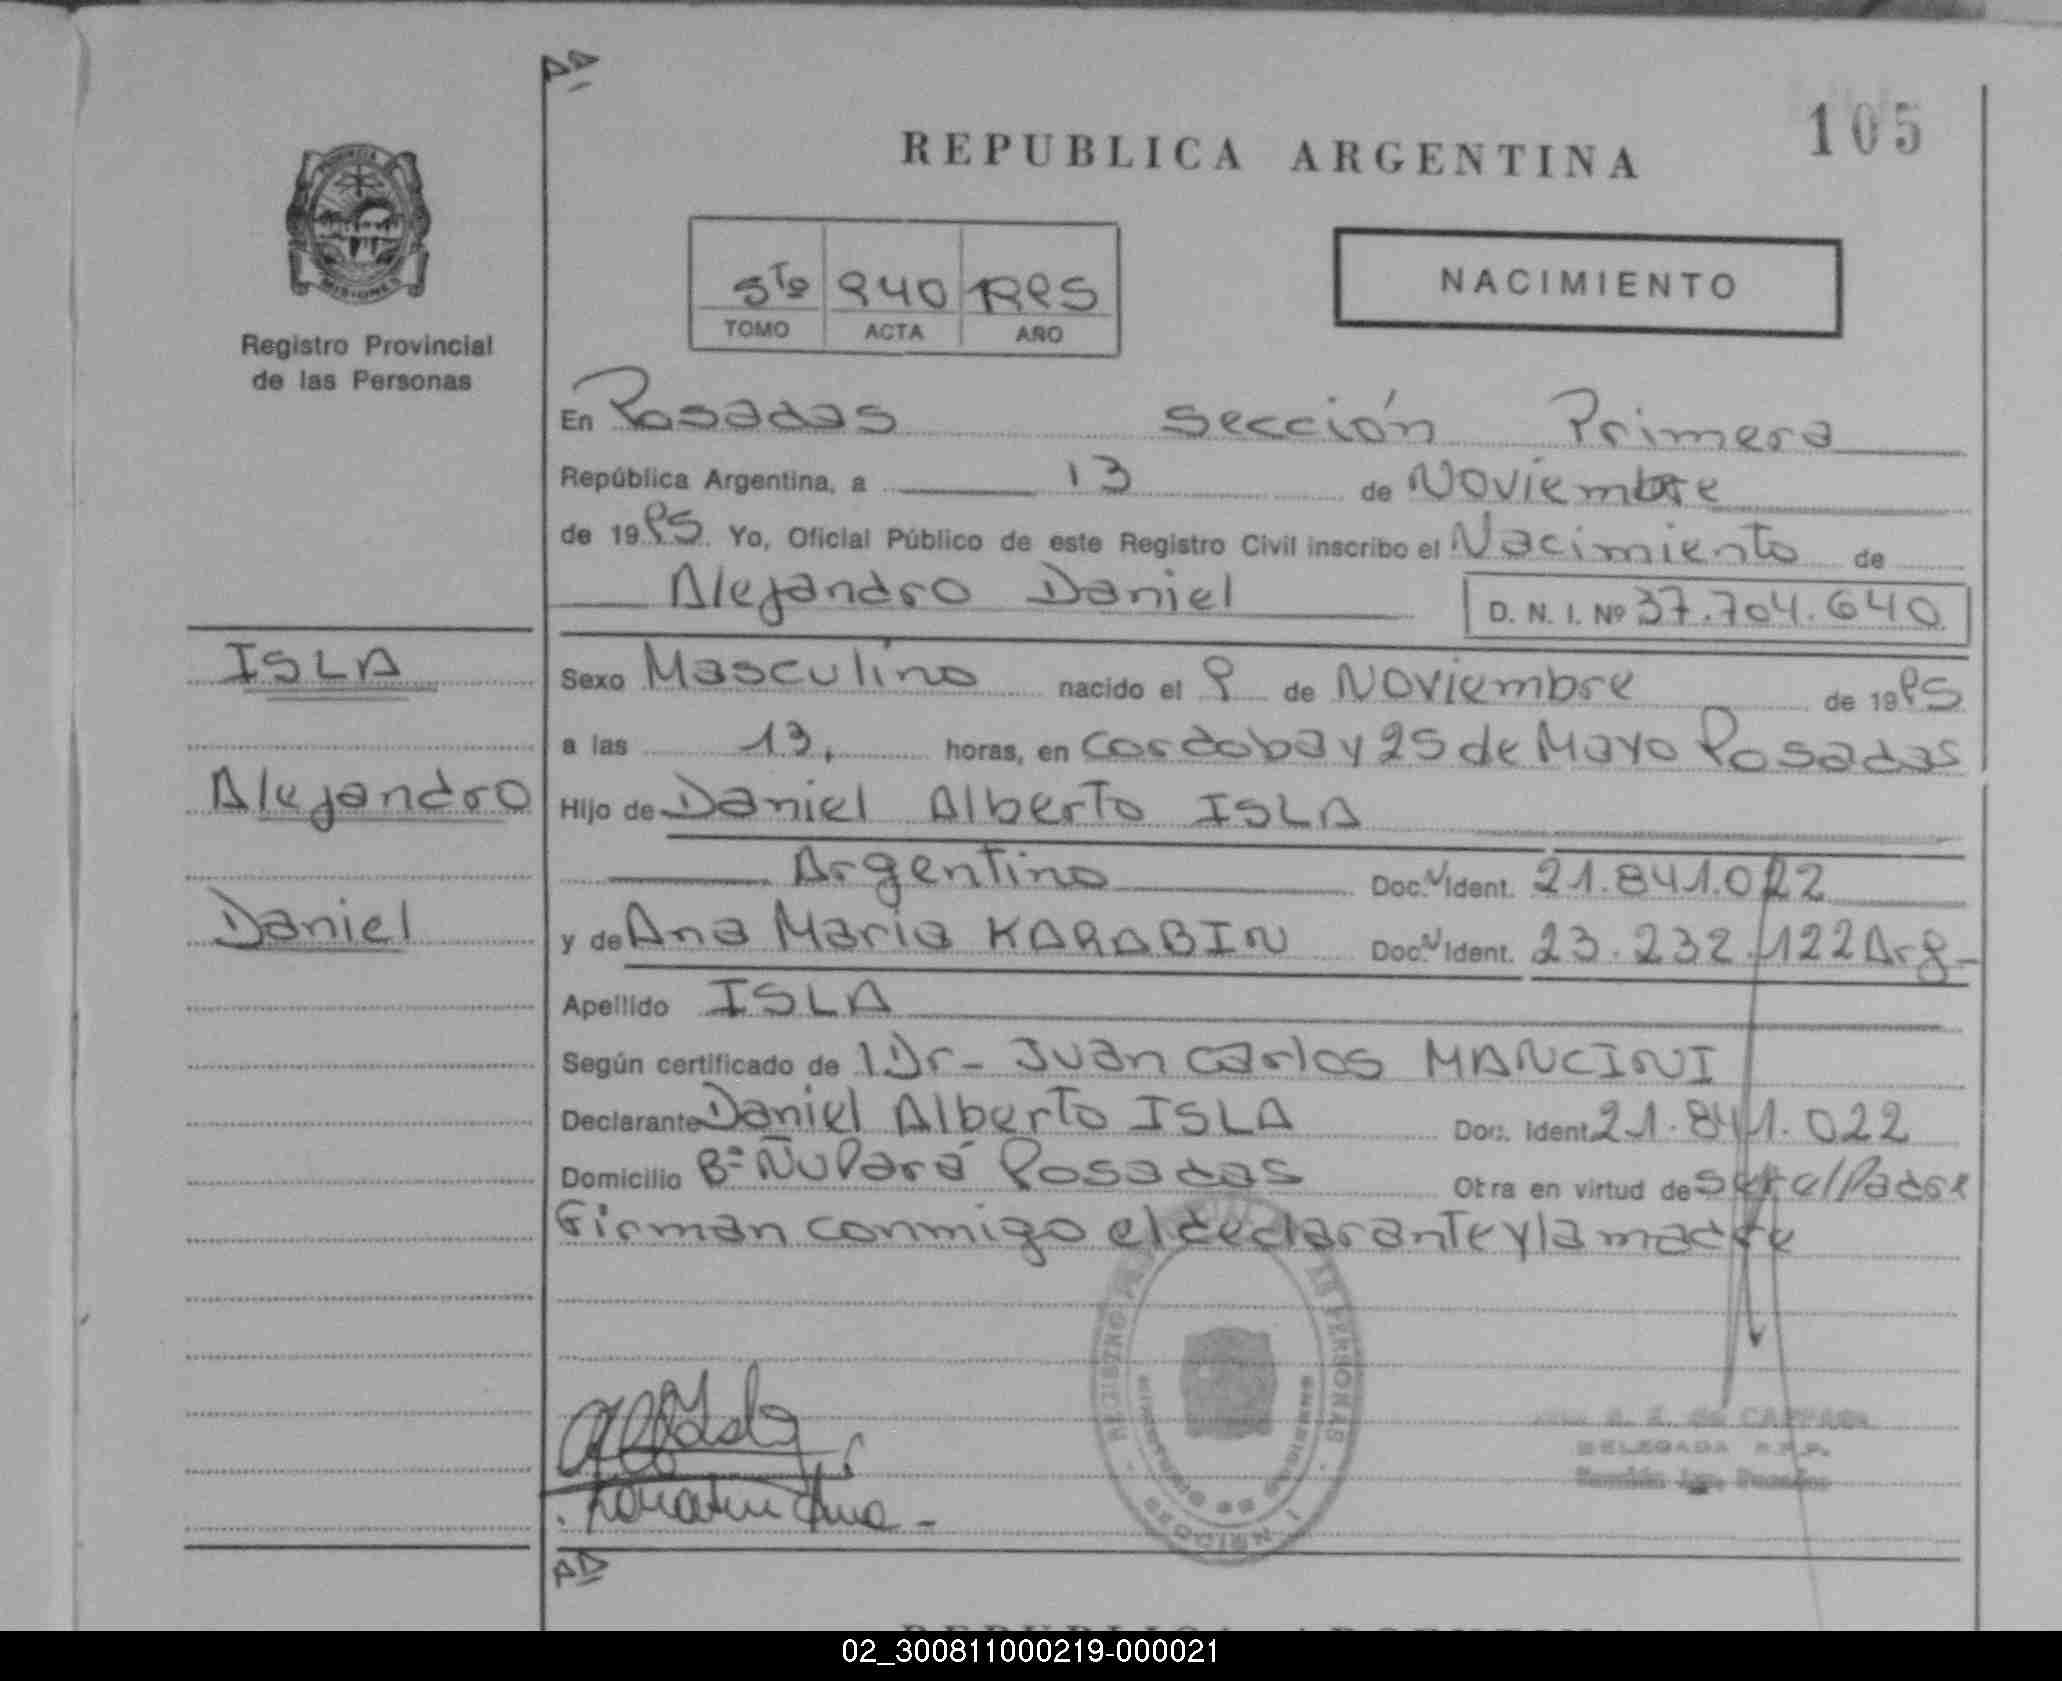 105
REPUBLICA ARGENTINA
PROVINCIA
MISIONES
Registro Provincial
de las Personas
5to 940 1995
TOMO ACTA AÑO
NACIMIENTO
En Posadas Sección Primera
República Argentina, a 13 de Noviembre
de 1995. Yo, Oficial Público de este Registro Civil inscribo el Nacimiento de
Alejandro Daniel D. N. I. Nº 37.704.640
ISLA
Alejandro
Daniel
Sexo Masculino nacido el 9 de Noviembre de 1995
a las 13, horas, en Cordoba y 25 de Mayo Posadas
Hijo de Daniel Alberto ISLA
Argentino Doc. Ident. 21.841.022
y de Ana Maria KARABIN Doc. Ident. 23.232.122 Arg-
Apellido ISLA
Según certificado de Dr- Juan Carlos MANCINI
Declarante Daniel Alberto ISLA Doc. Ident. 21.841.022
Domicilio Bº Ñu Pará Posadas Otra en virtud de ser el Padre
Firman conmigo el declarante y la madre
REGISTRO PERSONAS
DELEGADA R.P.P.
Sección 1ra. Posadas
Isla
Karabin Ana -
02_300811000219-000021